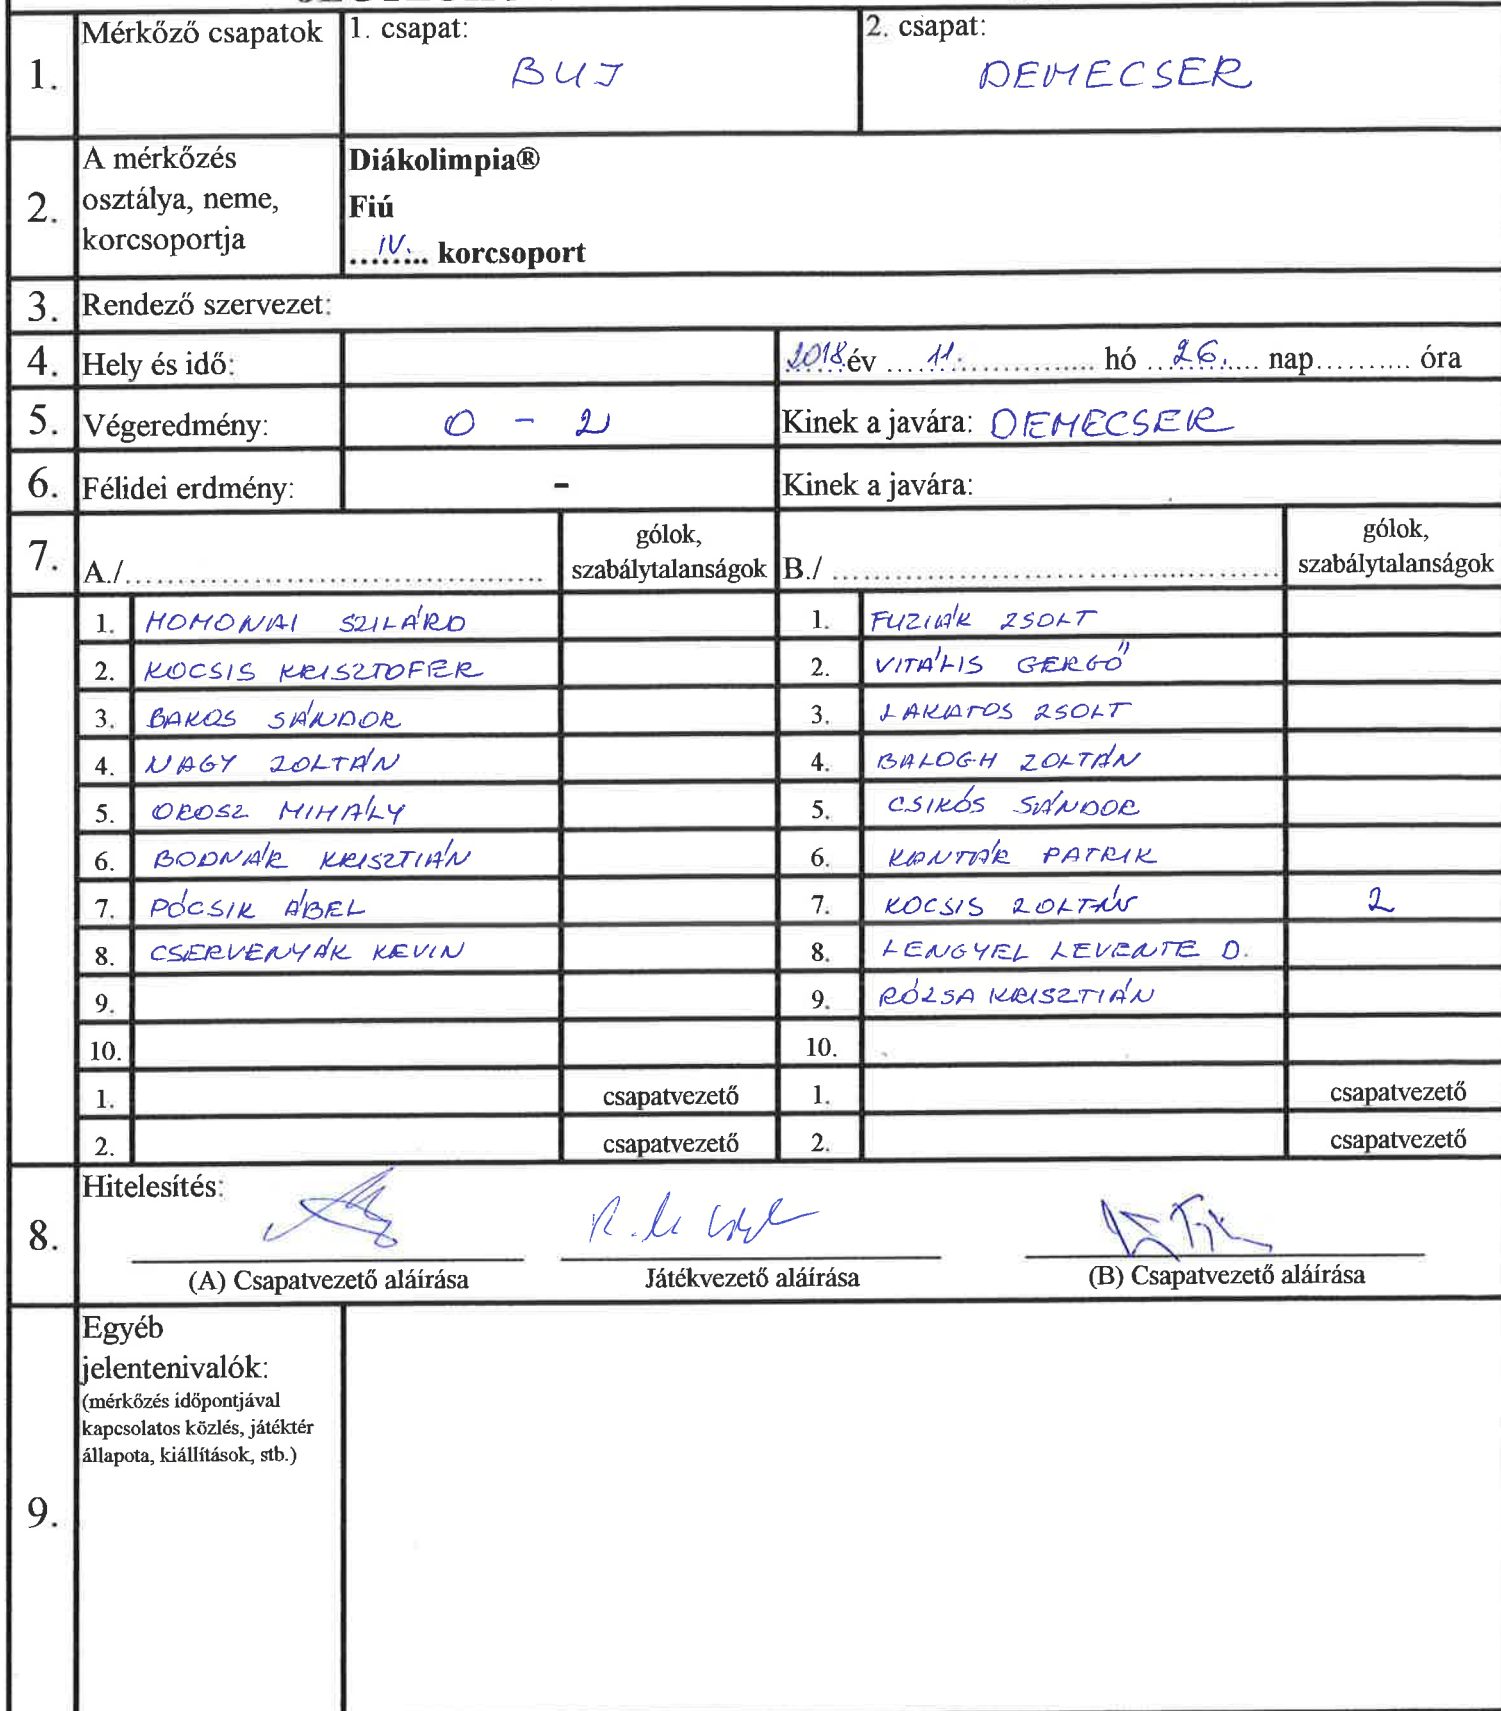 1. Mérkőző csapatok 1. csapat: 2. csapat:
BUJ DEMECSER
2. A mérkőzés osztálya, neme, korcsoportja
Diákolimpia®
Fiú
IV. korcsoport
3. Rendező szervezet:
4. Hely és idő: 2018 év 11. hó 26. nap.......... óra
5. Végeredmény: 0 - 2 Kinek a javára: DEMECSER
6. Félidei erdmény: - Kinek a javára:
7. A./ gólok, szabálytalanságok B./ gólok, szabálytalanságok
1. HOMONAI SZILÁRD 1. ZSOLT
2. KOCSIS KRISZTOFER 2. VITÁLIS GERGŐ
3. BAKOS SÁNDOR 3. LAKATOS ZSOLT
4. NAGY ZOLTÁN 4. BALOGH ZOLTÁN
5. OROSZ MIHÁLY 5. CSIKÓS SÁNDOR
6. BODNÁR KRISZTIÁN 6. KANTÁR PATRIK
7. PÓCSIK ÁBEL 7. KOCSIS ZOLTÁN 2
8. CSERVENYÁK KEVIN 8. LENGYEL LEVENTE D.
9. 9. RÓZSA KRISZTIÁN
10. 10.
1. csapatvezető 1. csapatvezető
2. csapatvezető 2. csapatvezető
8. Hitelesítés:
(A) Csapatvezető aláírása Játékvezető aláírása (B) Csapatvezető aláírása
9. Egyéb
jelentenivalók:
(mérkőzés időpontjával
kapcsolatos közlés, játéktér
állapota, kiállítások, stb.)